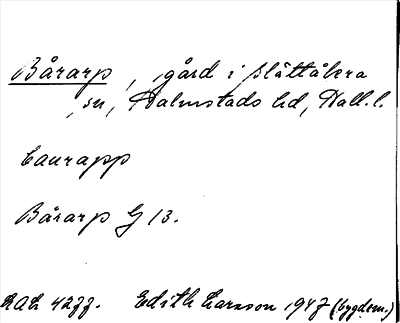 Bårarp, gård i Slättåkra
sn, Halmstads hd, Hall. l.
Baurapp
Bårarp G 13.
Edith Larsson 1947 (bygdem.)